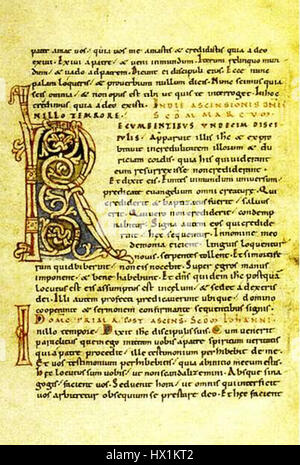 pater amat uos, quia uos me amastis & credidistis quia a deo
exiui. Exiui a patre, & ueni in mundum. Iterum relinquo mun
dum, & uado ad patrem. Dicunt ei discipuli eius. Ecce nunc
palam loqueris, & prouerbium nullum dicis. Nunc scimus quia
scis omnia, & non opus est tibi ut quis te interroget. In hoc
credimus quia a deo existi. IN DIE ASCENSIONIS DNI
IN ILLO TEMPORE. SCDM MARCVM
RECUMBENTIBUS UNDECIM DISCI
PULIS. Apparuit illis ihc & expro
brauit incredulitatem illorum & du
riciam cordis, quia his qui uiderant
eum resurrexisse non crediderant.
Et dixit eis. Euntes in mundum uniuersum
predicate euangelium omni creature. Qui
crediderit & baptizatus fuerit, saluus
erit. Qui uero non crediderit, condemp
nabitur. Signa autem eos qui credide
rint, hec sequentur. In nomine meo
demonia eicient, linguis loquentur
nouis, serpentes tollent. Et si mortife
rum quid biberint, non eis nocebit. Super egros manus
imponent, & bene habebunt. Et dns quidem ihc postquam
locutus est eis assumptus est in celum, & sedet a dextris
dei. Illi autem profecti predicauerunt ubique, domino
cooperante & sermonem confirmante sequentibus signis.
DOMC PRIMA POST ASCENS SCDM IOHANN
In illo tempore. Dixit ihc discipulis suis. Cum uenerit
paraclitus quem ego mittam uobis a patre spiritum ueritatis
qui a patre procedit, ille testimonium perhibebit de me.
Et uos testimonium perhibebitis, quia ab initio mecum estis.
Hec locutus sum uobis, ut non scandalizemini. Absque sina
gogis facient uos. Sed uenit hora, ut omnis qui interficit
uos arbitretur obsequium se prestare deo. Et hec facient
alamy
HX1KT2